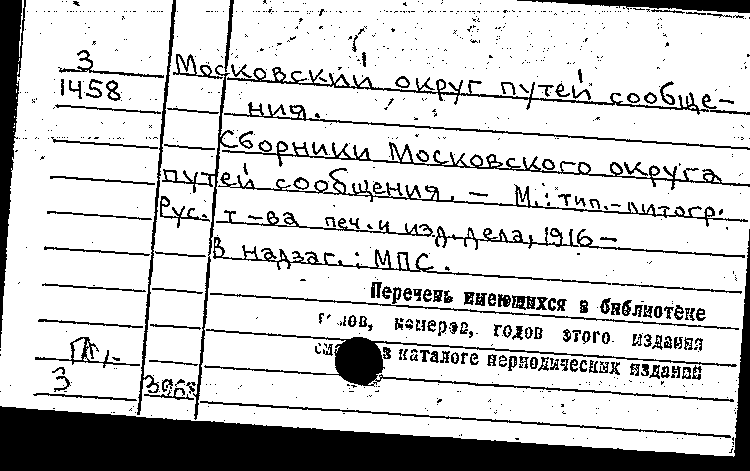 3
1458
Московский округ путей сообще-
ния.
Сборники Московского округа
путей сообщения. — М.: тип.-литогр.
Рус. т-ва печ. и изд. дела, 1916 —
В надзаг.: МПС.
Перечень имеющихся в библиотеке
номеров, годов этого издания
в каталоге периодических изданий
3